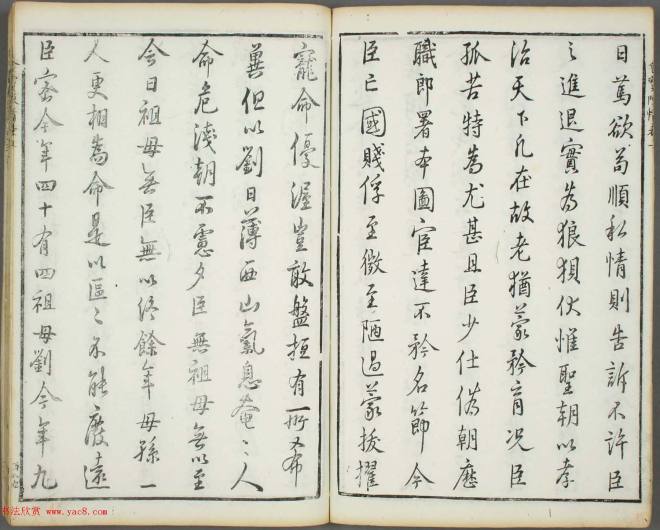 日篤欲苟順私情則告訴不許臣
之進退實為狼狽伏惟聖朝以孝
治天下凡在故老猶蒙矜育況臣
孤苦特為尤甚且臣少仕偽朝歷
職郎署本圖宦達不矜名節今
臣亡國賤俘至微至陋過蒙拔擢
寵命優渥豈敢盤桓有所希
冀但以劉日薄西山氣息奄〻人
命危淺朝不慮夕臣無祖母無以至
今日祖母無臣無以終餘年母孫一
人更相為命是以區〻不能廢遠
臣密今年四十有四祖母劉今年九
书法欣赏 www.yac8.com